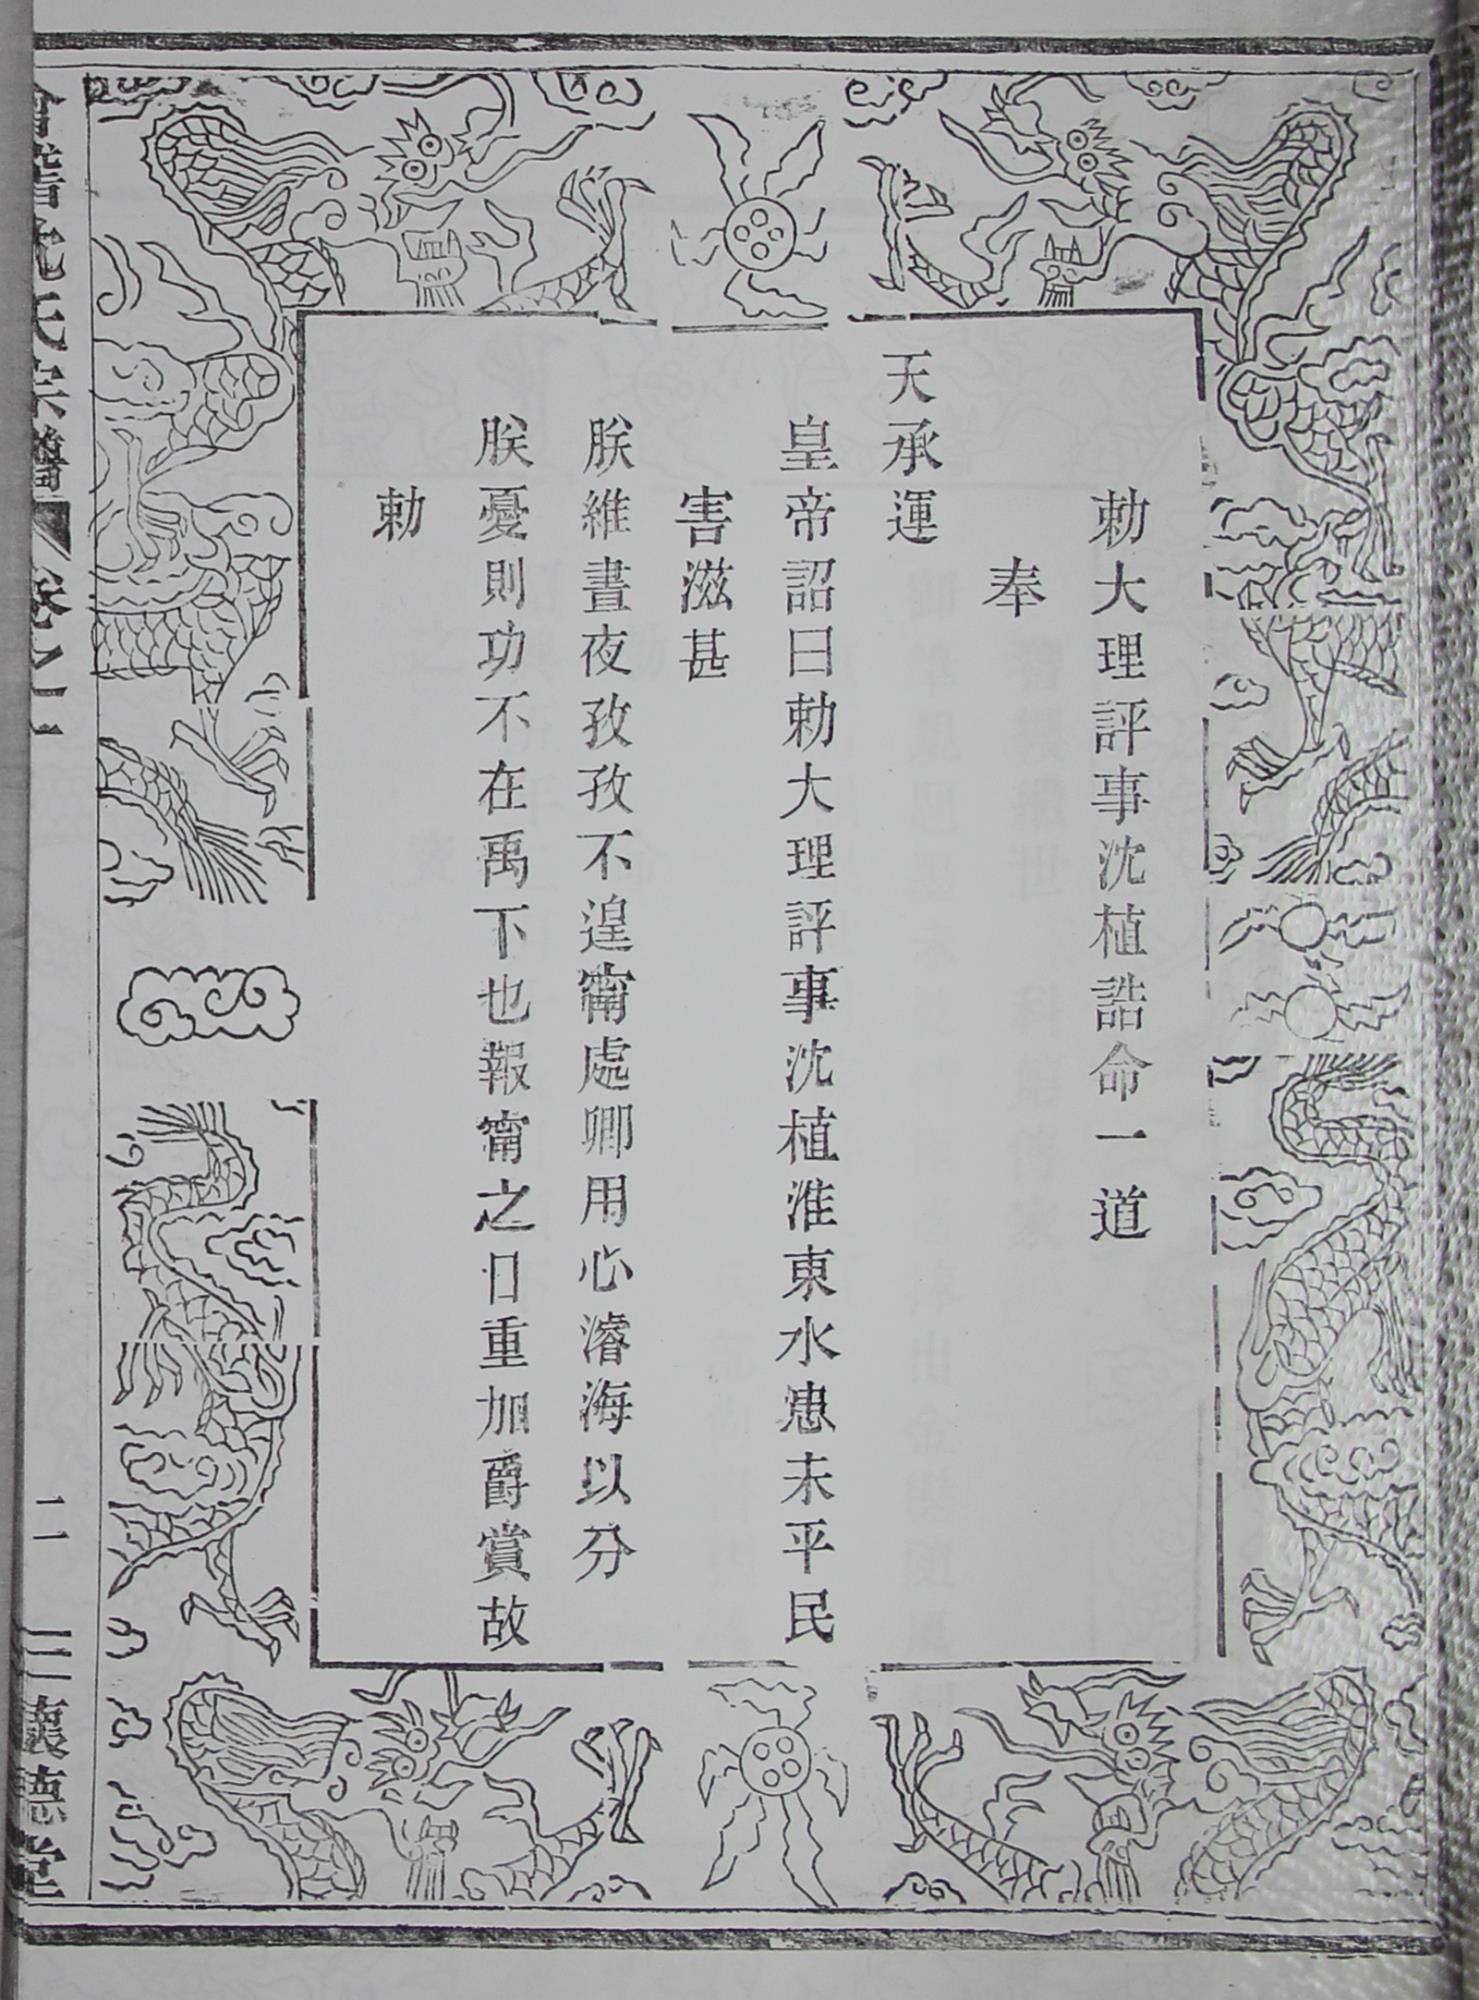 勅大理評事沈植誥命一道
奉
天承運
皇帝詔曰勅大理評事沈植淮東水患未平民
害滋甚
朕維晝夜孜孜不遑甯處卿用心濬海以分
朕憂則功不在禹下也報甯之日重加爵賞故
勅
稽沈氏宗譜 卷之一 二 三 懷德堂